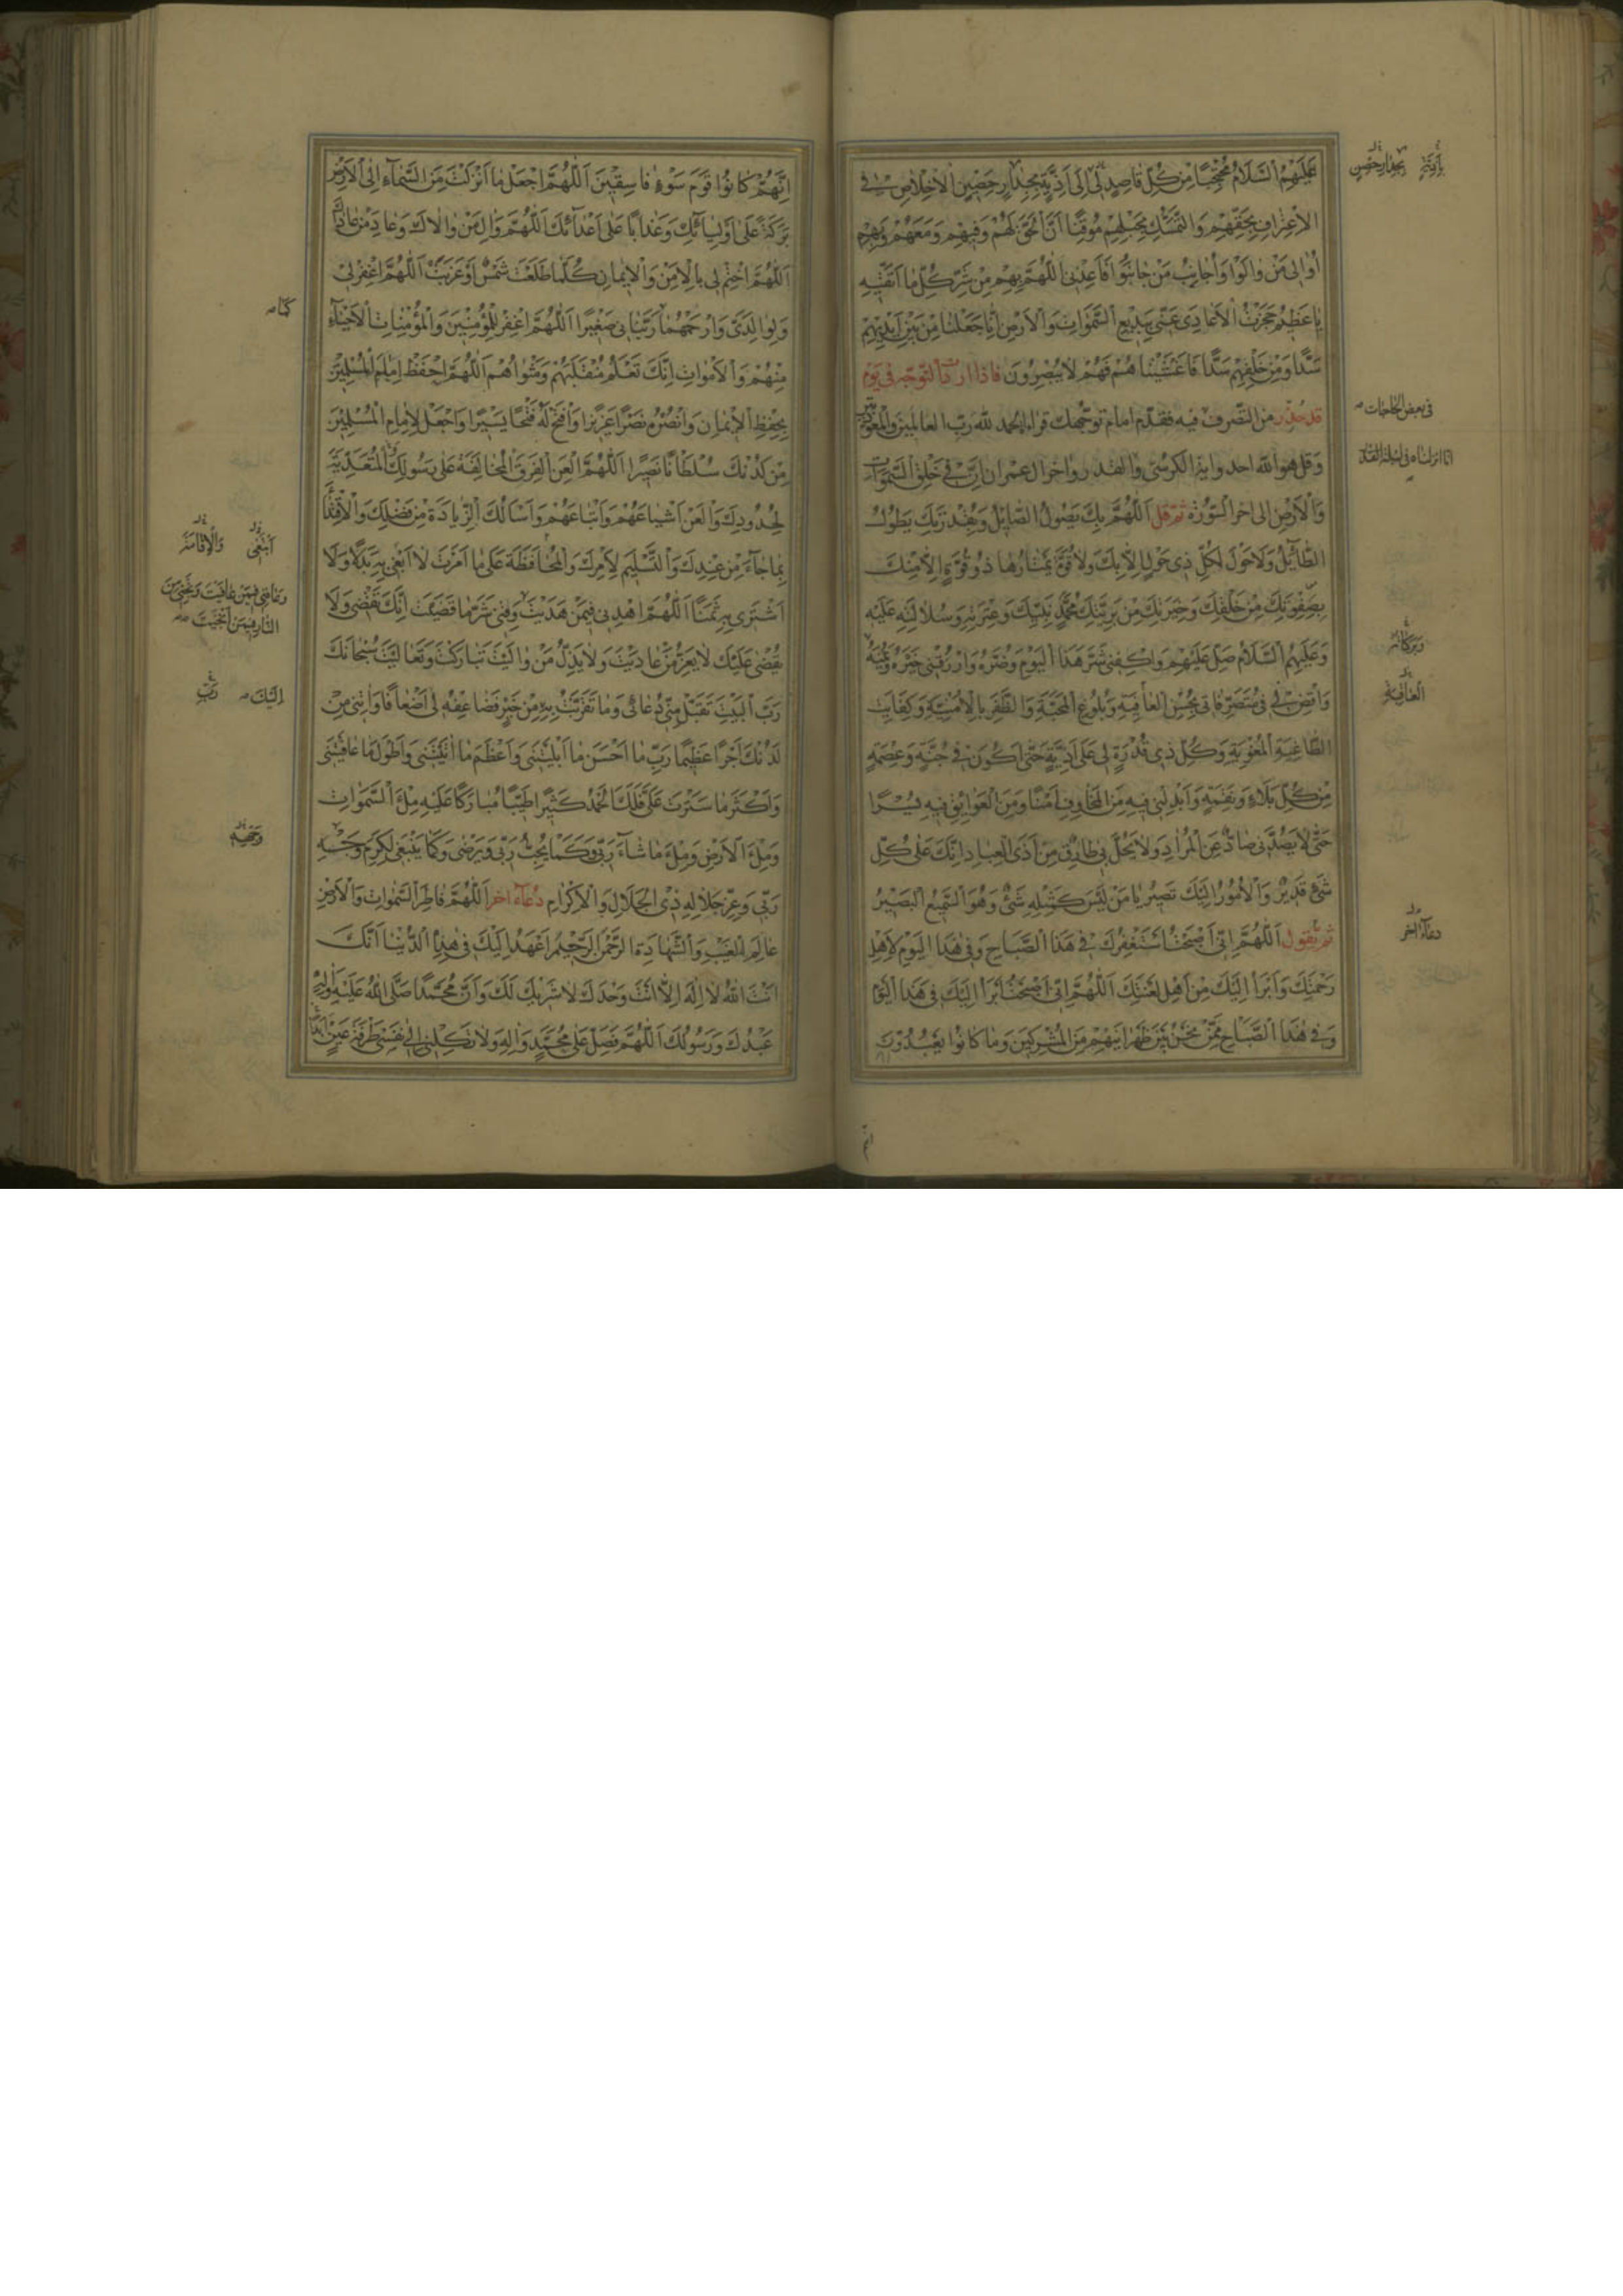 عَلَيْهِمُ السَّلَامُ مُحْتَجِبًا مِنْ كُلِّ قَاصِدٍ لِي إِلَى أَذِيَّةٍ بِجِدَارٍ حَصِينٍ الْإِخْلَاصِ فِي
الْاِعْتِرَافِ بِحَقِّهِمْ وَالتَّمَسُّكِ بِحَبْلِهِمْ مُوقِنًا أَنَّ الْحَقَّ لَهُمْ وَفِيهِمْ وَمَعَهُمْ وَبِهِمْ
أُوَالِي مَنْ وَالَوْا وَأُجَانِبُ مَنْ جَانَبُوا فَأَعِذْنِي اللَّهُمَّ بِهِمْ مِنْ شَرِّ كُلِّ مَا أَتَّقِيهِ
يَا عَظِيمُ حَجَزْتُ الْأَعَادِيَ عَنِّي بِبَدِيعِ السَّمَوَاتِ وَالْأَرْضِ إِنَّا جَعَلْنَا مِنْ بَيْنِ أَيْدِيهِمْ
سَدًّا وَمِنْ خَلْفِهِمْ سَدًّا فَأَغْشَيْنَاهُمْ فَهُمْ لَا يُبْصِرُونَ فاذا اردت التوجه في يوم
قد حذر من التصرف فيه فقدم امام توجهك قراءة الحمد لله رب العالمين والمعوذتين
وقل هو الله احد واية الكرسي والقدر واخر ال عمران إِنَّ فِي خَلْقِ السَّمَوَاتِ
وَالْأَرْضِ الى اخر السورة ثم قل اَللَّهُمَّ بِكَ يَصُولُ الصَّائِلُ وَبِقُدْرَتِكَ يَطُولُ
الطَّائِلُ وَلَا حَوْلَ لِكُلِّ ذِي حَوْلٍ إِلَّا بِكَ وَلَا قُوَّةَ يَمْتَارُهَا ذُو قُوَّةٍ إِلَّا مِنْكَ
بِصَفْوَتِكَ مِنْ خَلْقِكَ وَخِيَرَتِكَ مِنْ بَرِيَّتِكَ مُحَمَّدٍ نَبِيِّكَ وَعِتْرَتِهِ وَسُلَالَتِهِ عَلَيْهِ
وَعَلَيْهِمُ السَّلَامُ صَلِّ عَلَيْهِمْ وَاكْفِنِي شَرَّ هَذَا الْيَوْمِ وَضَرَّهُ وَارْزُقْنِي خَيْرَهُ وَيُمْنَهُ
وَاقْضِ لِي فِي مُتَصَرَّفَاتِي بِحُسْنِ الْعَافِيَةِ وَبُلُوغِ الْمَحَبَّةِ وَالظَّفَرِ بِالْأُمْنِيَّةِ وَكِفَايَةِ
الطَّاغِيَةِ الْمُغْوِيَةِ وَكُلِّ ذِي قُدْرَةٍ لِي عَلَى أَذِيَّةٍ حَتَّى أَكُونَ فِي جُنَّةٍ وَعِصْمَةٍ
مِنْ كُلِّ بَلَاءٍ وَنَقِمَةٍ وَأَبْدِلْنِي فِيهِ مِنَ الْمَخَاوِفِ أَمْنًا وَمِنَ الْعَوَائِقِ فِيهِ يُسْرًا
حَتَّى لَا يَصُدَّنِي صَادٌّ عَنِ الْمُرَادِ وَلَا يَحُلَّ بِي طَارِقٌ مِنْ أَذَى الْعِبَادِ إِنَّكَ عَلَى كُلِّ
شَيْءٍ قَدِيرٌ وَالْأُمُورُ إِلَيْكَ تَصِيرُ يَا مَنْ لَيْسَ كَمِثْلِهِ شَيْءٌ وَهُوَ السَّمِيعُ الْبَصِيرُ
ثم تقول اَللَّهُمَّ إِنِّي أَصْبَحْتُ أَسْتَغْفِرُكَ فِي هَذَا الصَّبَاحِ وَفِي هَذَا الْيَوْمِ لِأَهْلِ
رَحْمَتِكَ وَأَبْرَأُ إِلَيْكَ مِنْ أَهْلِ لَعْنَتِكَ اَللَّهُمَّ إِنِّي أَصْبَحْتُ أَبْرَأُ إِلَيْكَ فِي هَذَا الْيَوْمِ
وَفِي هَذَا الصَّبَاحِ مِمَّنْ نَحْنُ بَيْنَ ظَهْرَانَيْهِمْ مِنَ الْمُشْرِكِينَ وَمَا كَانُوا يَعْبُدُونَ
بِأَذِيَّتِهِ بِجِدَارِ حَصِينٍ
في بعض الحاجات
انا انزلناه في ليلة القدر
وَبَرَكَاتِهِ
الْعَاقِبَةِ
دعاء اخر
إِنَّهُمْ كَانُوا قَوْمَ سَوْءٍ فَاسِقِينَ اَللَّهُمَّ اجْعَلْ مَا أَنْزَلْتَ مِنَ السَّمَاءِ إِلَى الْأَرْضِ
بَرَكَةً عَلَى أَوْلِيَائِكَ وَعَذَابًا عَلَى أَعْدَائِكَ اَللَّهُمَّ وَالِ مَنْ وَالَاكَ وَعَادِ مَنْ عَادَاكَ
اَللَّهُمَّ اخْتِمْ لِي بِالْأَمْنِ وَالْإِيمَانِ كُلَّمَا طَلَعَتْ شَمْسٌ أَوْ غَرَبَتْ اَللَّهُمَّ اغْفِرْ لِي
وَلِوَالِدَيَّ وَارْحَمْهُمَا رَبَّيَانِي صَغِيرًا اَللَّهُمَّ اغْفِرْ لِلْمُؤْمِنِينَ وَالْمُؤْمِنَاتِ الْأَحْيَاءِ
مِنْهُمْ وَالْأَمْوَاتِ إِنَّكَ تَعْلَمُ مُنْقَلَبَهُمْ وَمَثْوَاهُمْ اَللَّهُمَّ احْفَظْ إِمَامَ الْمُسْلِمِينَ
بِحِفْظِ الْإِيمَانِ وَانْصُرْهُ نَصْرًا عَزِيزًا وَافْتَحْ لَهُ فَتْحًا يَسِيرًا وَاجْعَلْ لِإِمَامِ الْمُسْلِمِينَ
مِنْ لَدُنْكَ سُلْطَانًا نَصِيرًا اَللَّهُمَّ الْعَنِ الْفِرَقَ الْمُخَالِفَةَ عَلَى رَسُولِكَ الْمُتَعَدِّيَةَ
لِحُدُودِكَ وَالْعَنْ أَشْيَاعَهُمْ وَأَتْبَاعَهُمْ وَأَسْأَلُكَ الزِّيَادَةَ مِنْ فَضْلِكَ وَالْاِقْتِدَاءَ
بِمَا جَاءَ مِنْ عِنْدِكَ وَالتَّسْلِيمَ لِأَمْرِكَ وَالْمُحَافَظَةَ عَلَى مَا أَمَرْتَ لَا أَبْغِي بِهِ بَدَلًا وَلَا
أَشْتَرِي بِهِ ثَمَنًا اَللَّهُمَّ اهْدِنِي فِيمَنْ هَدَيْتَ وَقِنِي شَرَّ مَا قَضَيْتَ إِنَّكَ تَقْضِي وَلَا
يُقْضَى عَلَيْكَ لَا يَعِزُّ مَنْ عَادَيْتَ وَلَا يَذِلُّ مَنْ وَالَيْتَ تَبَارَكْتَ وَتَعَالَيْتَ سُبْحَانَكَ
رَبَّ الْبَيْتِ تَقَبَّلْ مِنِّي دُعَائِي وَمَا تَقَرَّبْتُ بِهِ مِنْ خَيْرٍ فَضَاعِفْهُ لِي أَضْعَافًا وَآتِنِي مِنْ
لَدُنْكَ أَجْرًا عَظِيمًا رَبِّ مَا أَحْسَنَ مَا أَبْلَيْتَنِي وَأَعْظَمَ مَا آتَيْتَنِي وَأَطْوَلَ مَا عَافَيْتَنِي
وَأَكْثَرَ مَا سَتَرْتَ عَلَيَّ فَلَكَ الْحَمْدُ كَثِيرًا طَيِّبًا مُبَارَكًا عَلَيْهِ مِلْءَ السَّمَوَاتِ
وَمِلْءَ الْأَرْضِ وَمِلْءَ مَا شَاءَ رَبِّي وَكَمَا يُحِبُّ رَبِّي وَيَرْضَى وَكَمَا يَنْبَغِي لِكَرَمِ وَجْهِ
رَبِّي وَعِزِّ جَلَالِهِ ذِي الْجَلَالِ وَالْإِكْرَامِ دعاء اخر اَللَّهُمَّ فَاطِرَ السَّمَوَاتِ وَالْأَرْضِ
عَالِمَ الْغَيْبِ وَالشَّهَادَةِ الرَّحْمَنَ الرَّحِيمَ أَعْهَدُ إِلَيْكَ فِي هَذِهِ الدُّنْيَا أَنَّكَ
أَنْتَ اللَّهُ لَا إِلَهَ إِلَّا أَنْتَ وَحْدَكَ لَا شَرِيكَ لَكَ وَأَنَّ مُحَمَّدًا صَلَّى اللَّهُ عَلَيْهِ وَآلِهِ
عَبْدُكَ وَرَسُولُكَ اَللَّهُمَّ فَصَلِّ عَلَى مُحَمَّدٍ وَآلِهِ وَلَا تَكِلْنِي إِلَى نَفْسِي طَرْفَةَ عَيْنٍ أَبَدًا
كَمَا
أَبْتَغِي وَالْإِقَامَةَ
وَعَافِنِي فِيمَنْ عَافَيْتَ وَنَجِّنِي مِنَ
النَّارِ فِيمَنْ أَنْجَيْتَ
إِلَيْكَ رَبِّ
وَجْهِهِ
انهم